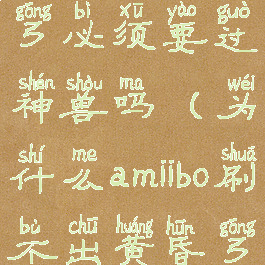 gōng bì xū yào guò
弓必须要过
shén shòu ma wéi
神兽吗（为
shí me shuā
什么amiibo刷
bù chū huáng hūn gōng
不出黄昏弓